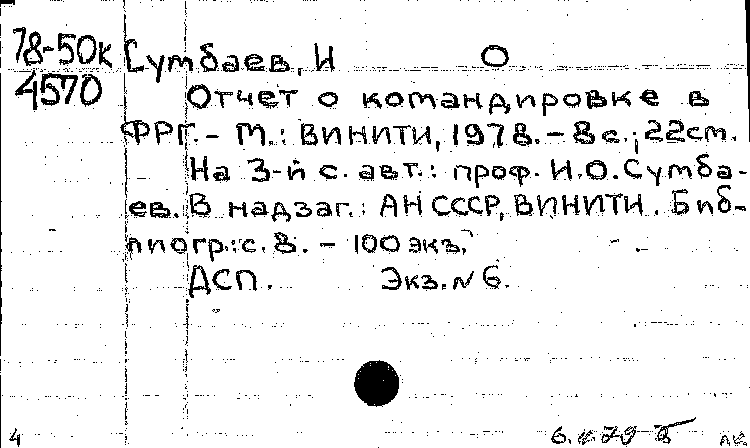 78-50к Сумбаев, И О
4570 Отчет о командировке в
ФРГ. - М.: ВИНИТИ, 1978. - 8 с.; 22см.
На 3-й с. авт.: проф. И.О.Сумба-
ев. В надзаг.: АН СССР, ВИНИТИ. Биб-
лиогр.: с. 8. - 100 экз.
ДСП. Экз. № 6.
4